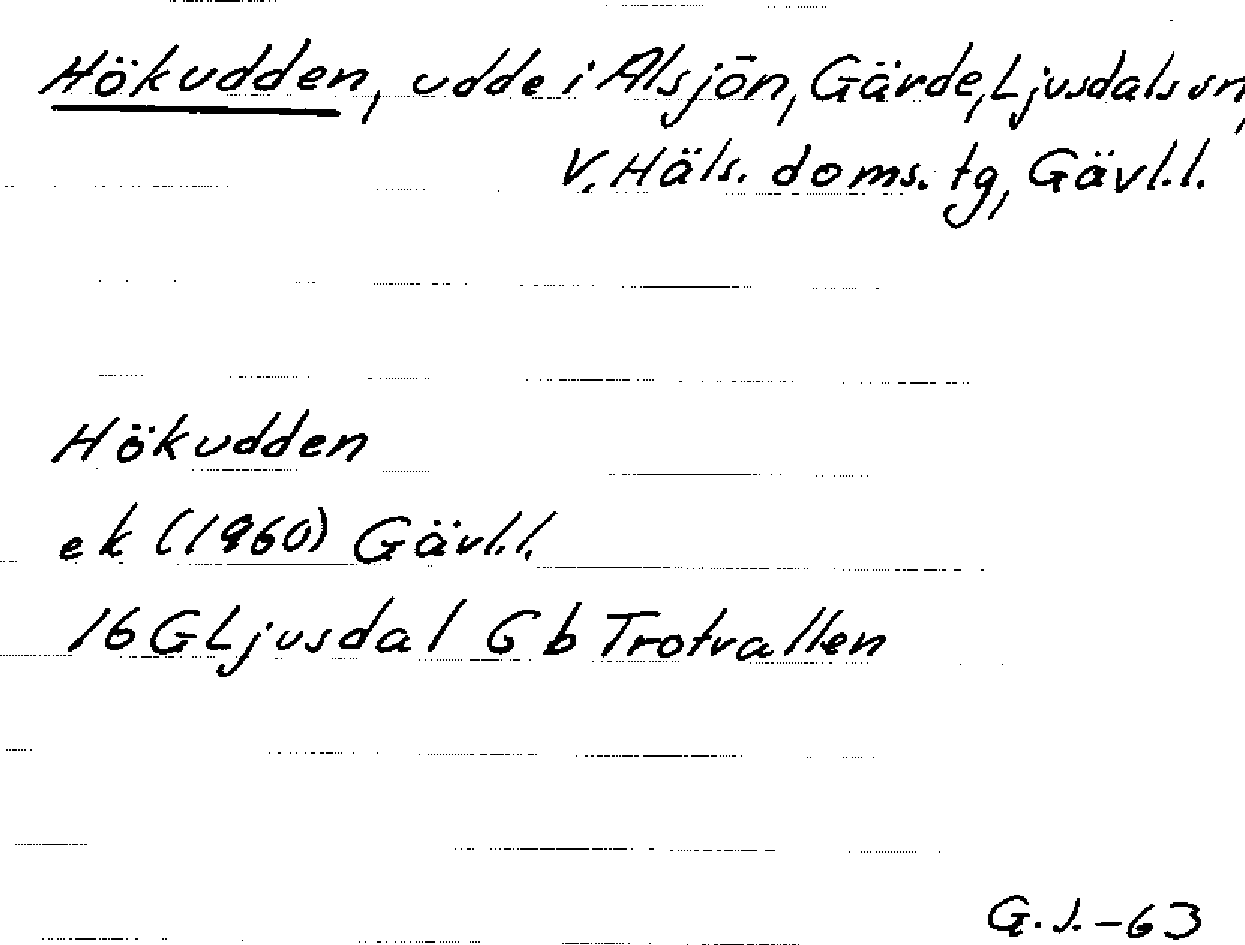 Hökudden, udde i Alsjön, Gärde, Ljusdals sn,
V. Häls. doms. tg, Gävl.l.
Hökudden
ek (1960) Gävl.l.
16 G Ljusdal 6 b Trotvallen
G.J.-63